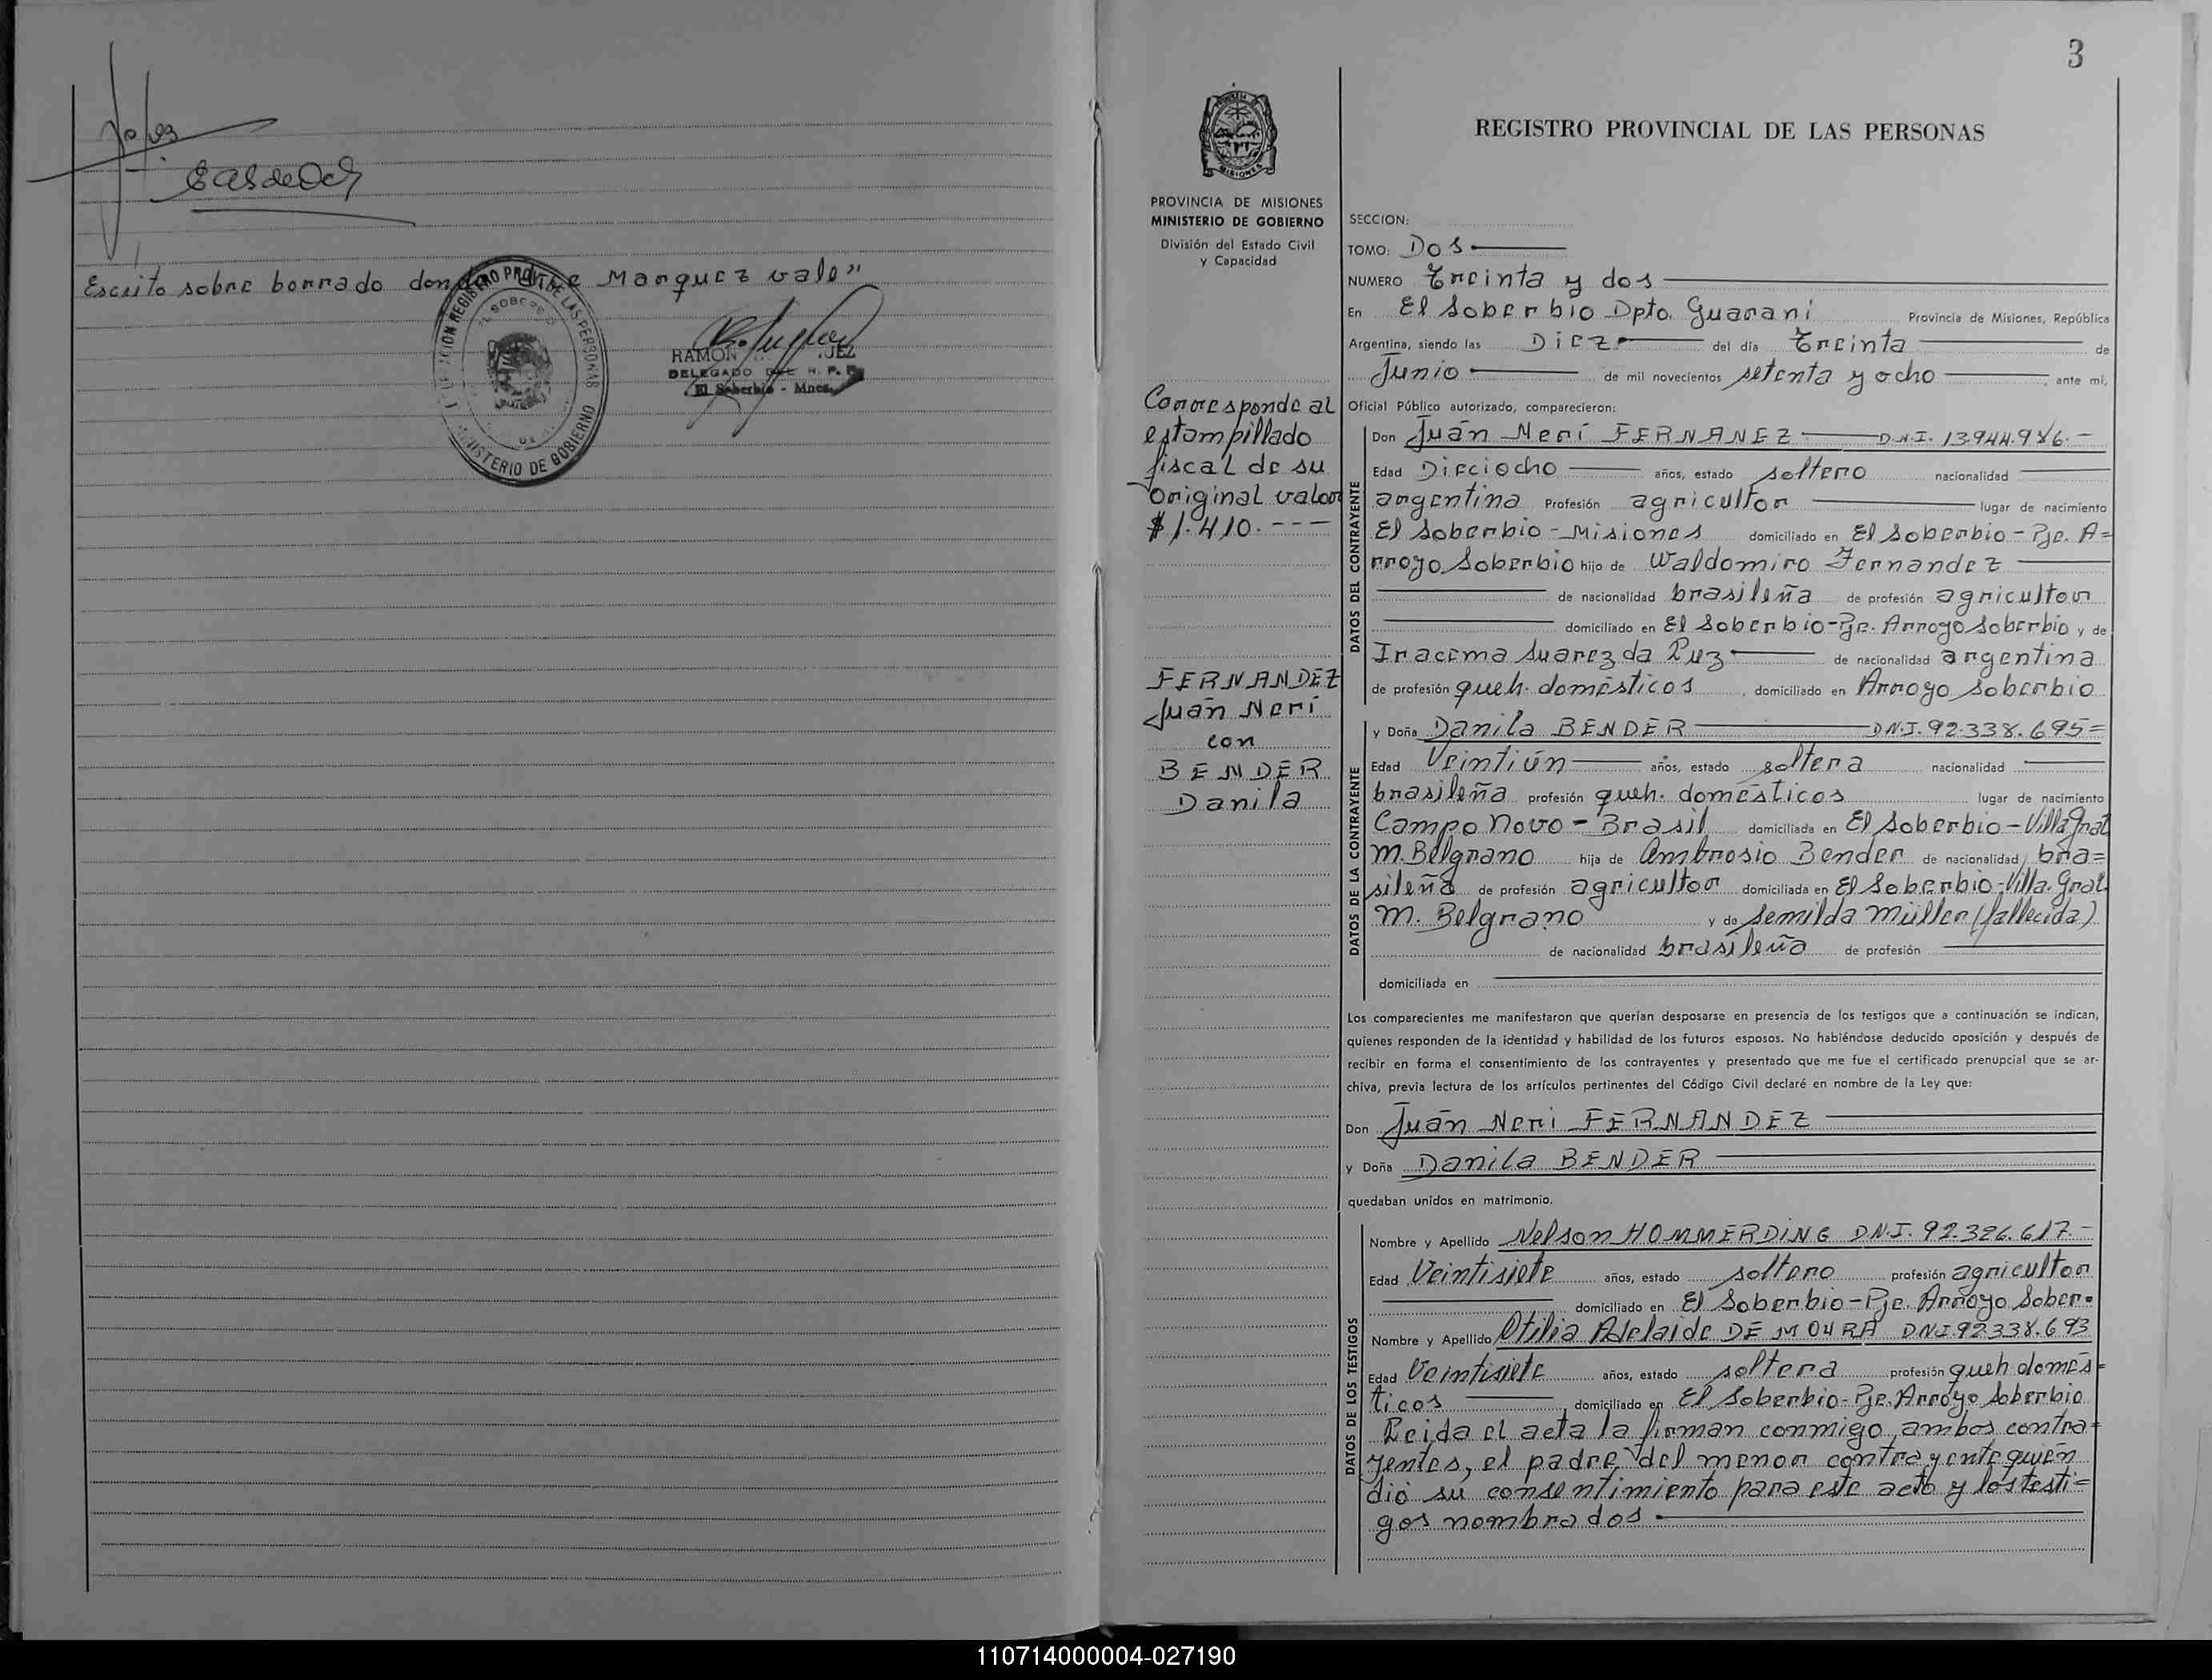 Escrito sobre borrado donde Marquez vale"
REGISTRO PROV. DE LAS PERSONAS
MINISTERIO DE GOBIERNO
RAMON
DELEGADO DEL R. P. P.
El Soberbio - Mnes.
3
PROVINCIA DE MISIONES
MINISTERIO DE GOBIERNO
División del Estado Civil
y Capacidad
Corresponde al
estampillado
fiscal de su
original valor
$ 1.410.---
FERNANDEZ
Juán Neri
con
BENDER
Danila
REGISTRO PROVINCIAL DE LAS PERSONAS
SECCION:
TOMO: Dos
NUMERO Treinta y dos
En El Soberbio Dpto. Guarani Provincia de Misiones, República
Argentina, siendo las Diez del día Treinta de
Junio de mil novecientos setenta y ocho ante mi,
Oficial Público autorizado, comparecieron:
DATOS DEL CONTRAYENTE
Don Juán Neri FERNANEZ D.N.I. 13.944.986.-
Edad Dieciocho años, estado soltero nacionalidad
argentina Profesión agricultor lugar de nacimiento
El Soberbio - Misiones domiciliado en El Soberbio - Pje. A=
rroyo Soberbio hijo de Waldomiro Fernandez
de nacionalidad brasileña de profesión agricultor
domiciliado en El Soberbio-Pje. Arroyo Soberbio y de
Iracema Suarez da Luz de nacionalidad argentina
de profesión queh. domésticos, domiciliado en Arroyo Soberbio
DATOS DE LA CONTRAYENTE
y Doña Danila BENDER D.N.I. 92.338.695=
Edad Veintiún años, estado soltera nacionalidad
brasileña profesión queh. domésticos lugar de nacimiento
Campo Novo - Brasil domiciliada en El Soberbio - Villa Gral
M. Belgrano hija de Ambrosio Bender de nacionalidad bra=
sileña de profesión agricultor domiciliada en El Soberbio-Villa. Gral.
M. Belgrano y de Semilda Müller (fallecida)
de nacionalidad brasileña de profesión
domiciliada en
Los comparecientes me manifestaron que querían desposarse en presencia de los testigos que a continuación se indican,
quienes responden de la identidad y habilidad de los futuros esposos. No habiéndose deducido oposición y después de
recibir en forma el consentimiento de los contrayentes y presentado que me fue el certificado prenupcial que se ar-
chiva, previa lectura de los artículos pertinentes del Código Civil declaré en nombre de la Ley que:
Don Juán Neri FERNANDEZ
y Doña Danila BENDER
quedaban unidos en matrimonio.
DATOS DE LOS TESTIGOS
Nombre y Apellido Nelson HOMMERDING D.N.I. 92.326.617.-
Edad Veintisiete años, estado soltero profesión agricultor
domiciliado en El Soberbio-Pje. Arroyo Sober.
Nombre y Apellido Otilia Adelaide DE MOURA DNI.92.338.693
Edad Veintisiete años, estado soltera profesión queh domés=
ticos domiciliado en El Soberbio-Pje. Arroyo Soberbio
Leida el acta la firman conmigo ambos contra=
yentes, el padre del menor contrayente quién
dió su consentimiento para este acto y los testi=
gos nombrados
110714000004-027190